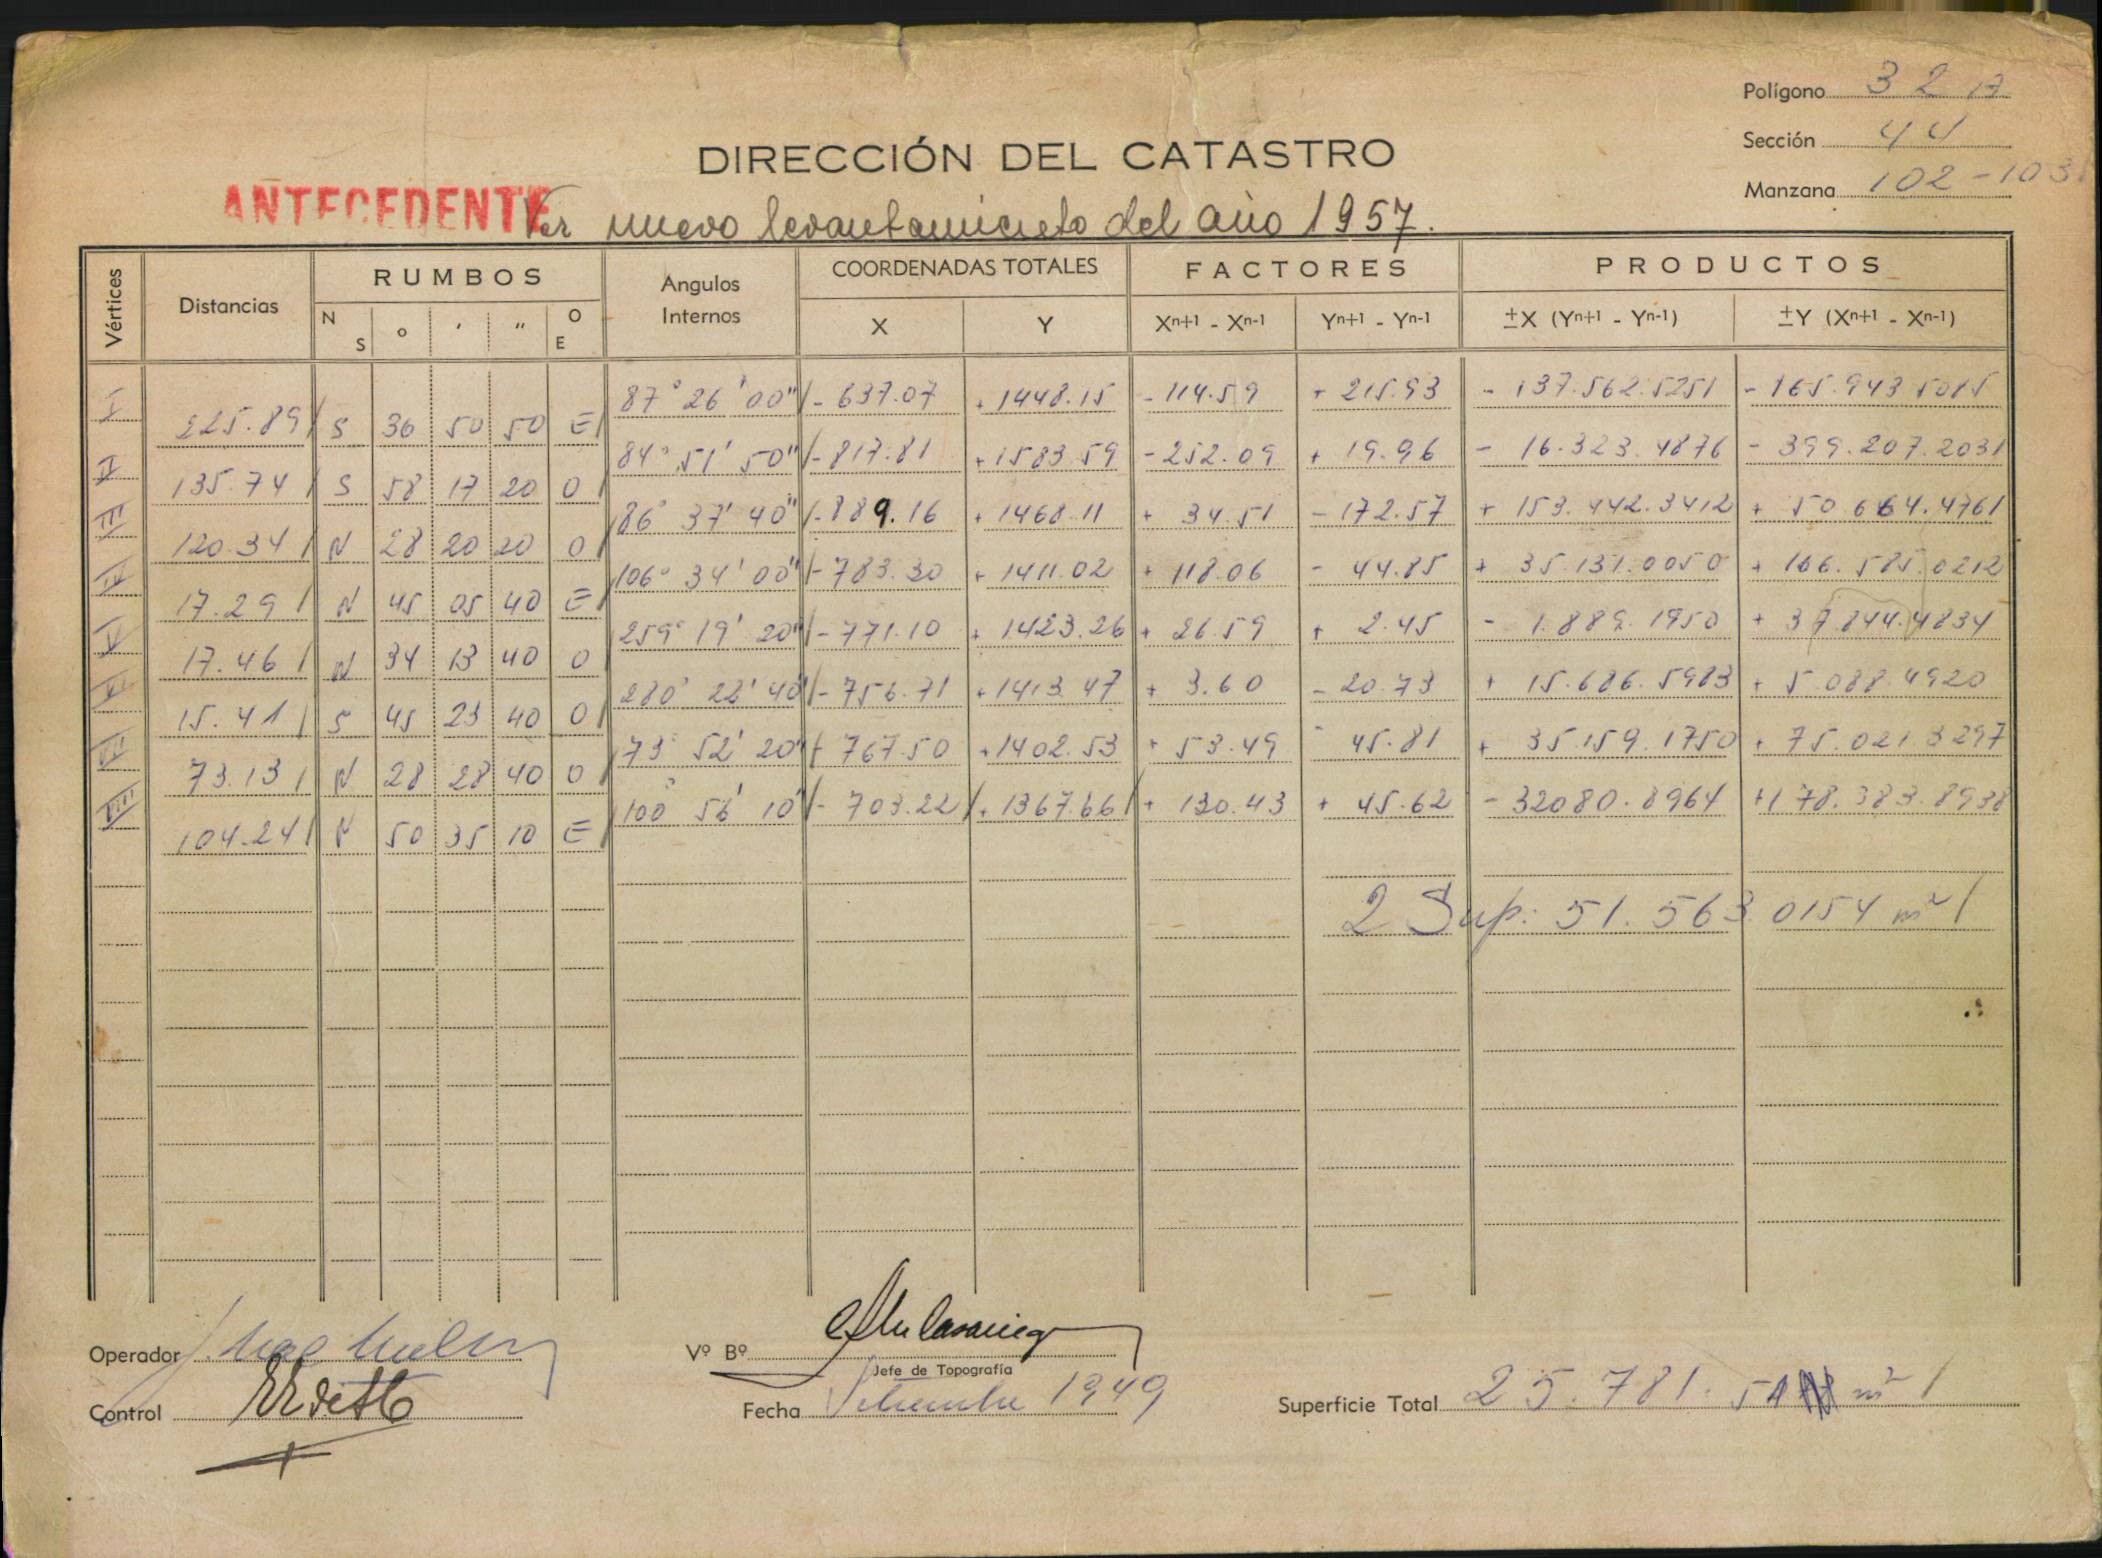 Polígono 3 2 A
DIRECCIÓN DEL CATASTRO
Sección 44
ANTECEDENTE
Manzana 102-103
Ver nuevo levantamiento del año 1957.
Vértices Distancias RUMBOS Angulos Internos COORDENADAS TOTALES FACTORES PRODUCTOS
N S ° ' " O E X Y Xn+1 - Xn-1 Yn+1 - Yn-1 ±X (Yn+1 - Yn-1) ±Y (Xn+1 - Xn-1)
I 87° 26' 00" - 637.07 + 1448.15 - 114.59 + 215.93 - 137.562.5251 - 165.943.5085
225.89 S 36 50 50 E
II 84° 51' 50" - 817.81 + 1583.59 - 252.09 + 19.96 - 16.323.4876 - 399.207.2031
135.74 S 58 17 20 O
III 86° 37' 40" - 889.16 + 1468.11 + 34.51 - 172.57 + 153.442.3412 + 50.664.4761
120.34 N 28 20 20 O
IV 106° 34' 00" - 783.30 + 1411.02 + 118.06 - 44.85 + 35.131.0050 + 166.585.0212
17.29 N 45 05 40 E
V 259° 19' 20" - 771.10 + 1423.26 + 26.59 + 2.45 - 1.889.1950 + 37.844.4834
17.46 N 34 13 40 O
VI 280° 22' 40" - 756.71 + 1413.47 + 3.60 - 20.73 + 15.686.5983 + 5.088.4920
15.41 S 45 23 40 O
VII 73° 52' 20" - 767.50 + 1402.53 + 53.49 - 45.81 + 35.159.1750 + 75.021.3297
73.13 N 28 28 40 O
VIII 100° 56' 10" - 703.22 + 1367.66 + 130.43 + 45.62 - 32080.8964 + 178.383.8938
104.24 N 50 35 10 E
2 Sup: 51.563.0154 m²
Operador
Vº Bº
Jefe de Topografía
Control
Fecha Setiembre 1949
Superficie Total 25.781.51 m²